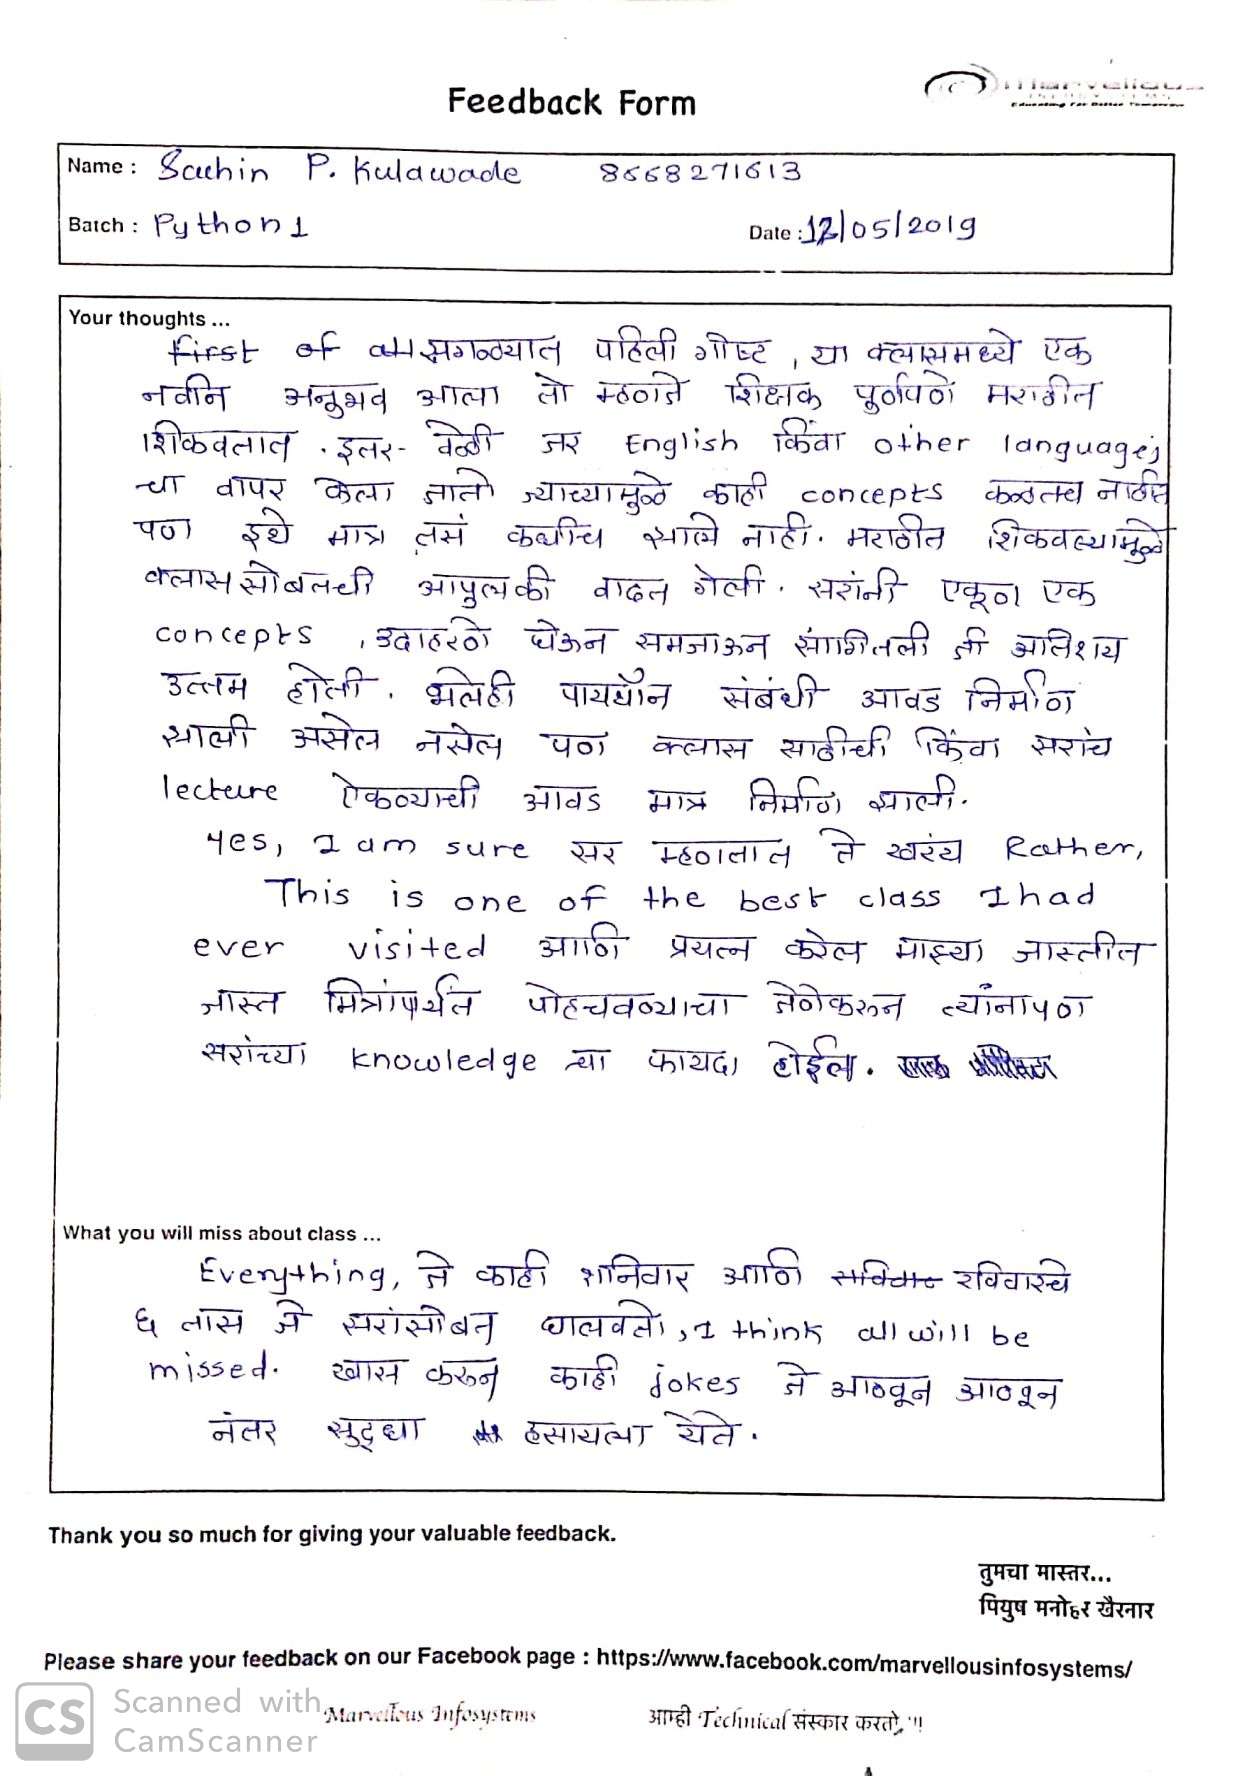 Marvellous
Educating For Better Tomorrow
Feedback Form
Name : Sachin P. Kulawade 8668271613
Batch : Python 1
Date : 12/05/2019
Your thoughts ...
first of all सगळ्यात पहिली गोष्ट , या क्लासमध्ये एक
नवीन अनुभव आला तो म्हणजे शिक्षक पुर्णपणे मराठीत
शिकवतात . इतर- वेळी जर English किंवा other languages
चा वापर केला जातो ज्याच्यामुळे काही concepts कळतच नाहीत
पण इथे मात्र तसं कधीच झाले नाही. मराठीत शिकवल्यामुळे
क्लाससोबतची आपुलकी वाढत गेली. सरांनी एकूण एक
concepts , उदाहरणे घेऊन समजाऊन सांगितली ती अतिशय
उत्तम होती. भलेही पायथॉन संबंधी आवड निर्माण
झाली असेल नसेल पण क्लास साठीची किंवा सरांच
lecture ऐकण्याची आवड मात्र निर्माण झाली.
Yes, I am sure सर म्हणतात ते खरंय Rather,
This is one of the best class I had
ever visited आणि प्रयत्न करेल माझ्या जास्तीत
जास्त मित्रांपर्यंत पोहचवण्याचा जेणेकरून त्यांनापण
सरांच्या knowledge चा फायदा होईल.
What you will miss about class ...
Everything, जे काही शनिवार आणि रविवारचे
६ तास जे सरांसोबत घालवतो, I think all will be
missed. खास करून काही jokes जे आठवून आठवून
नंतर सुद्धा हसायला येते.
Thank you so much for giving your valuable feedback.
तुमचा मास्तर...
पियुष मनोहर खैरनार
Please share your feedback on our Facebook page : https://www.facebook.com/marvellousinfosystems/
CS Scanned with CamScanner
Marvellous Infosystems आम्ही Technical संस्कार करतो, "!!